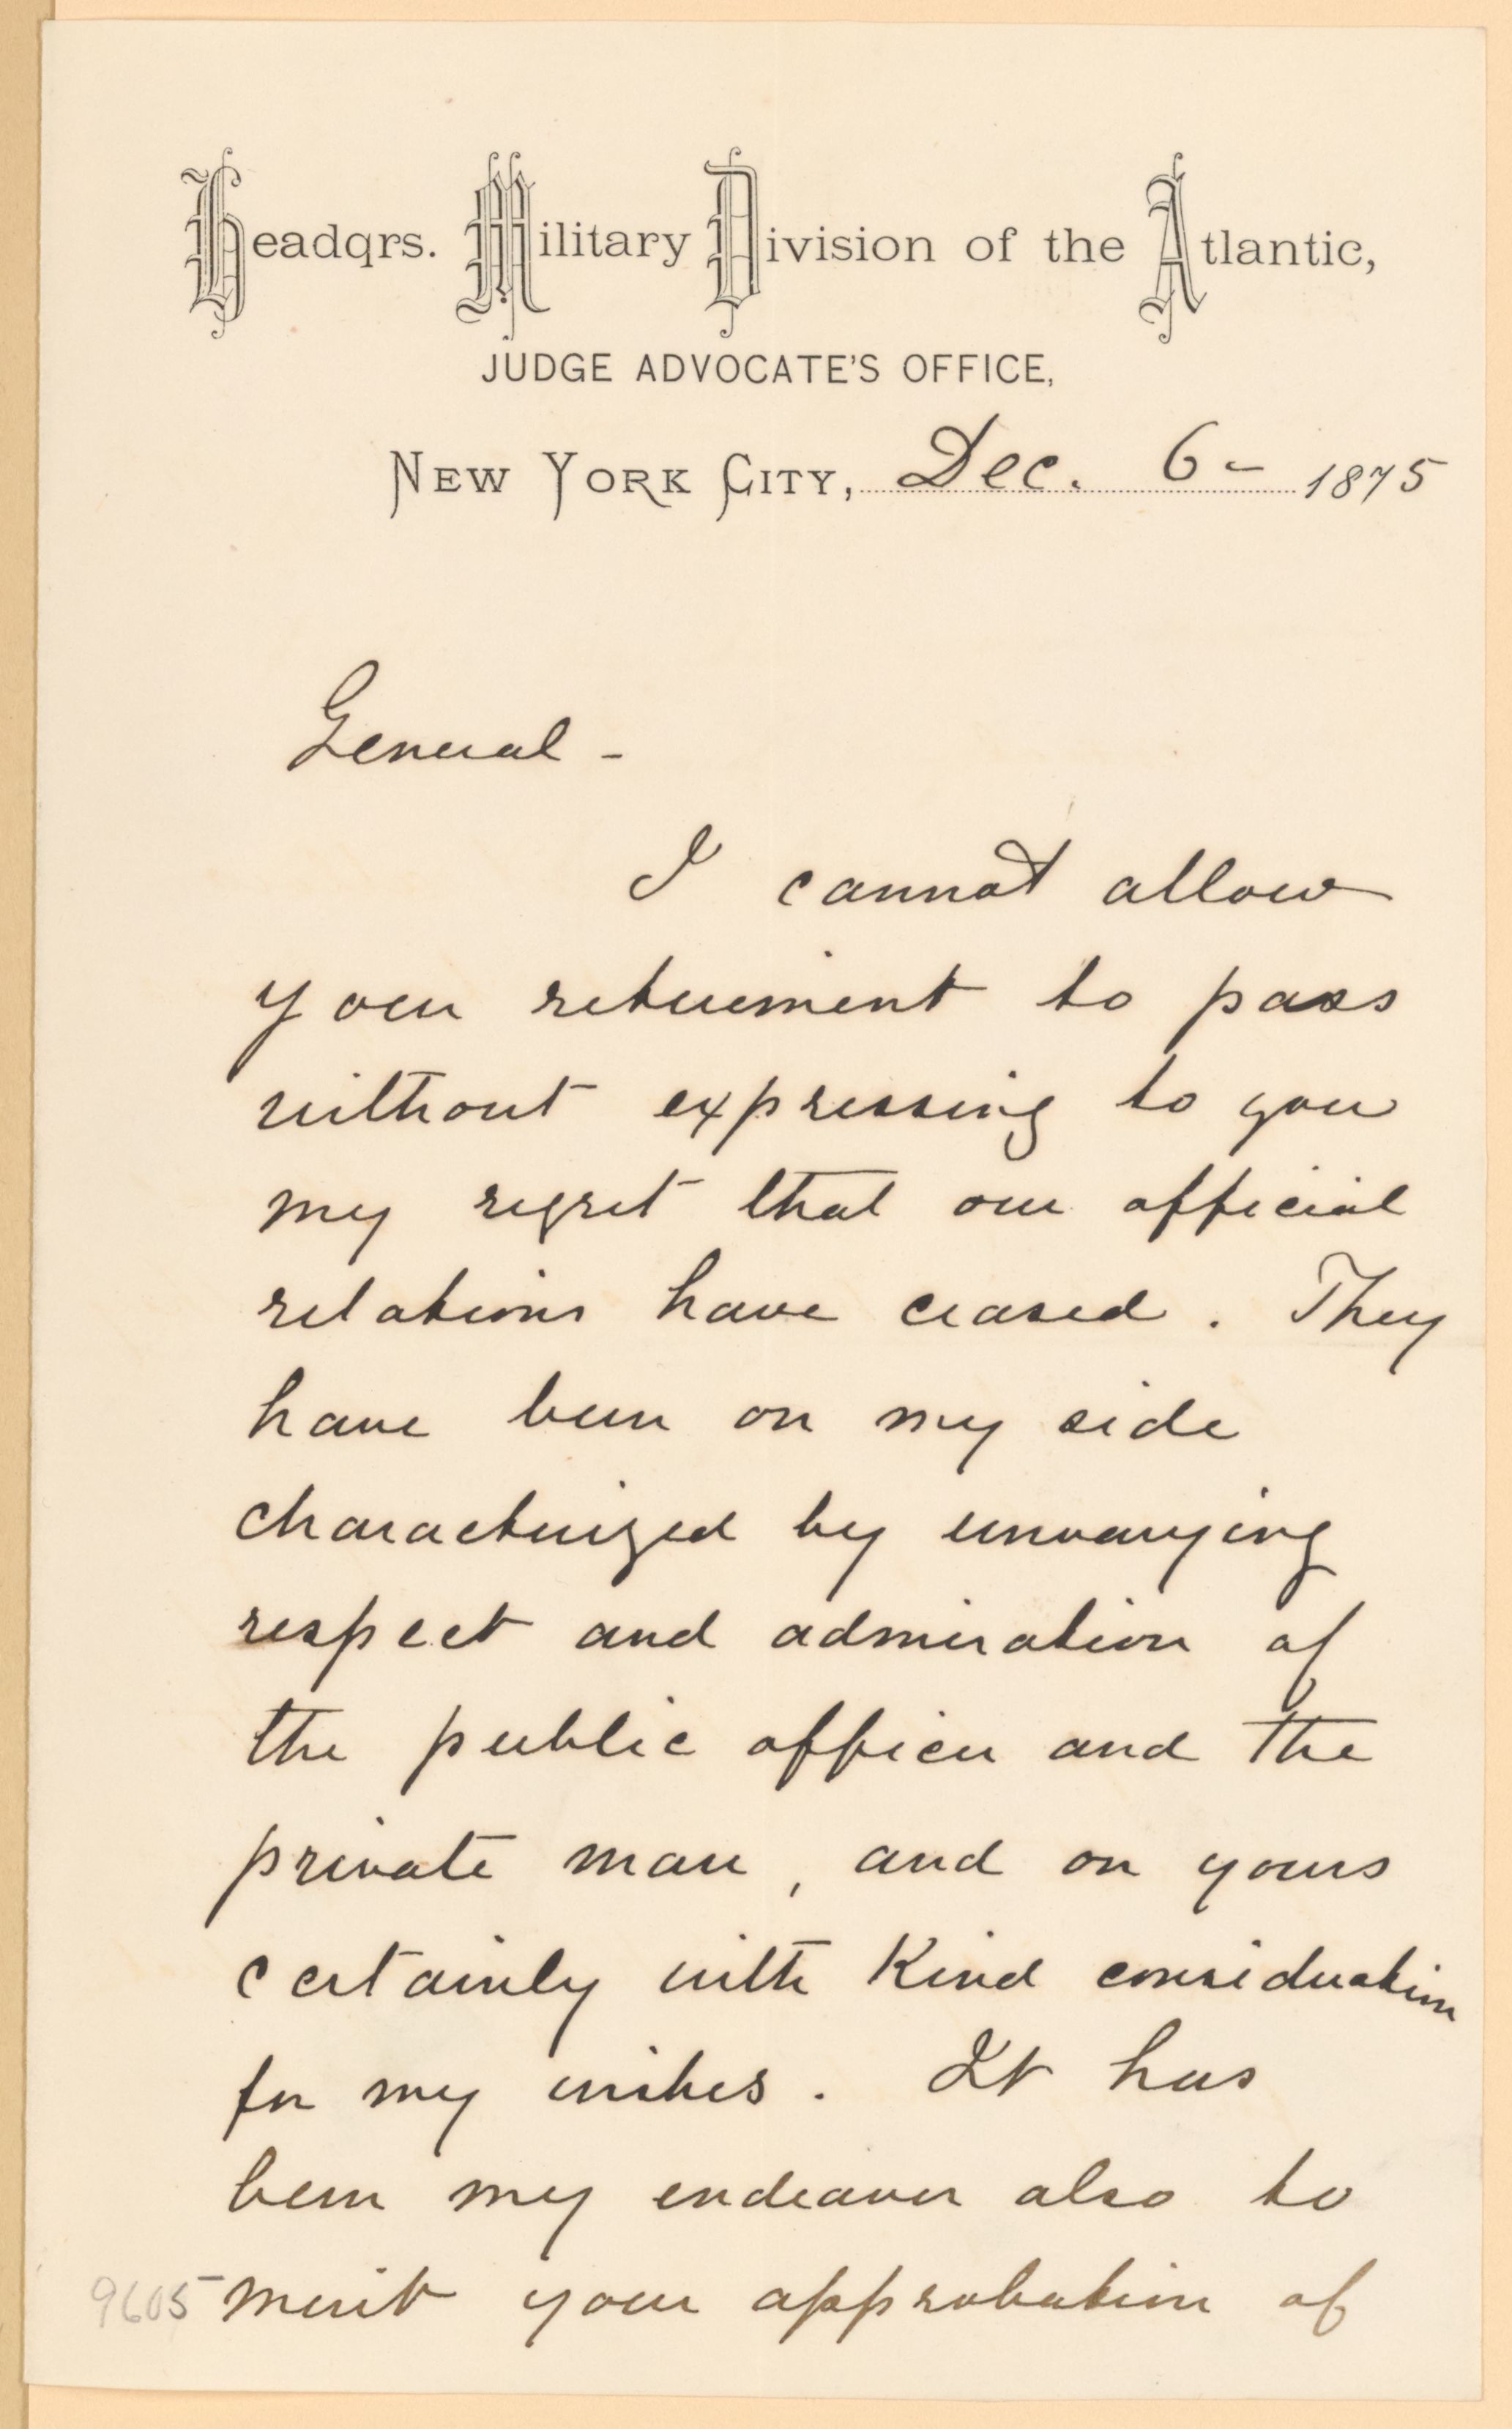 Headqrs. Military Division of the Atlantic,
JUDGE ADVOCATE'S OFFICE,
NEW YORK CITY, Dec. 6- 1875
General -
I cannot allow
your retirement to pass
without expressing to you
my regret that our official
relations have ceased. They
have been on my side
characterized by unvarying
respect and admiration of
the public officer and the
private man, and on yours
certainly with Kind consideration
for my wishes. It has
been my endeavor also to
9605 merit your approbation of